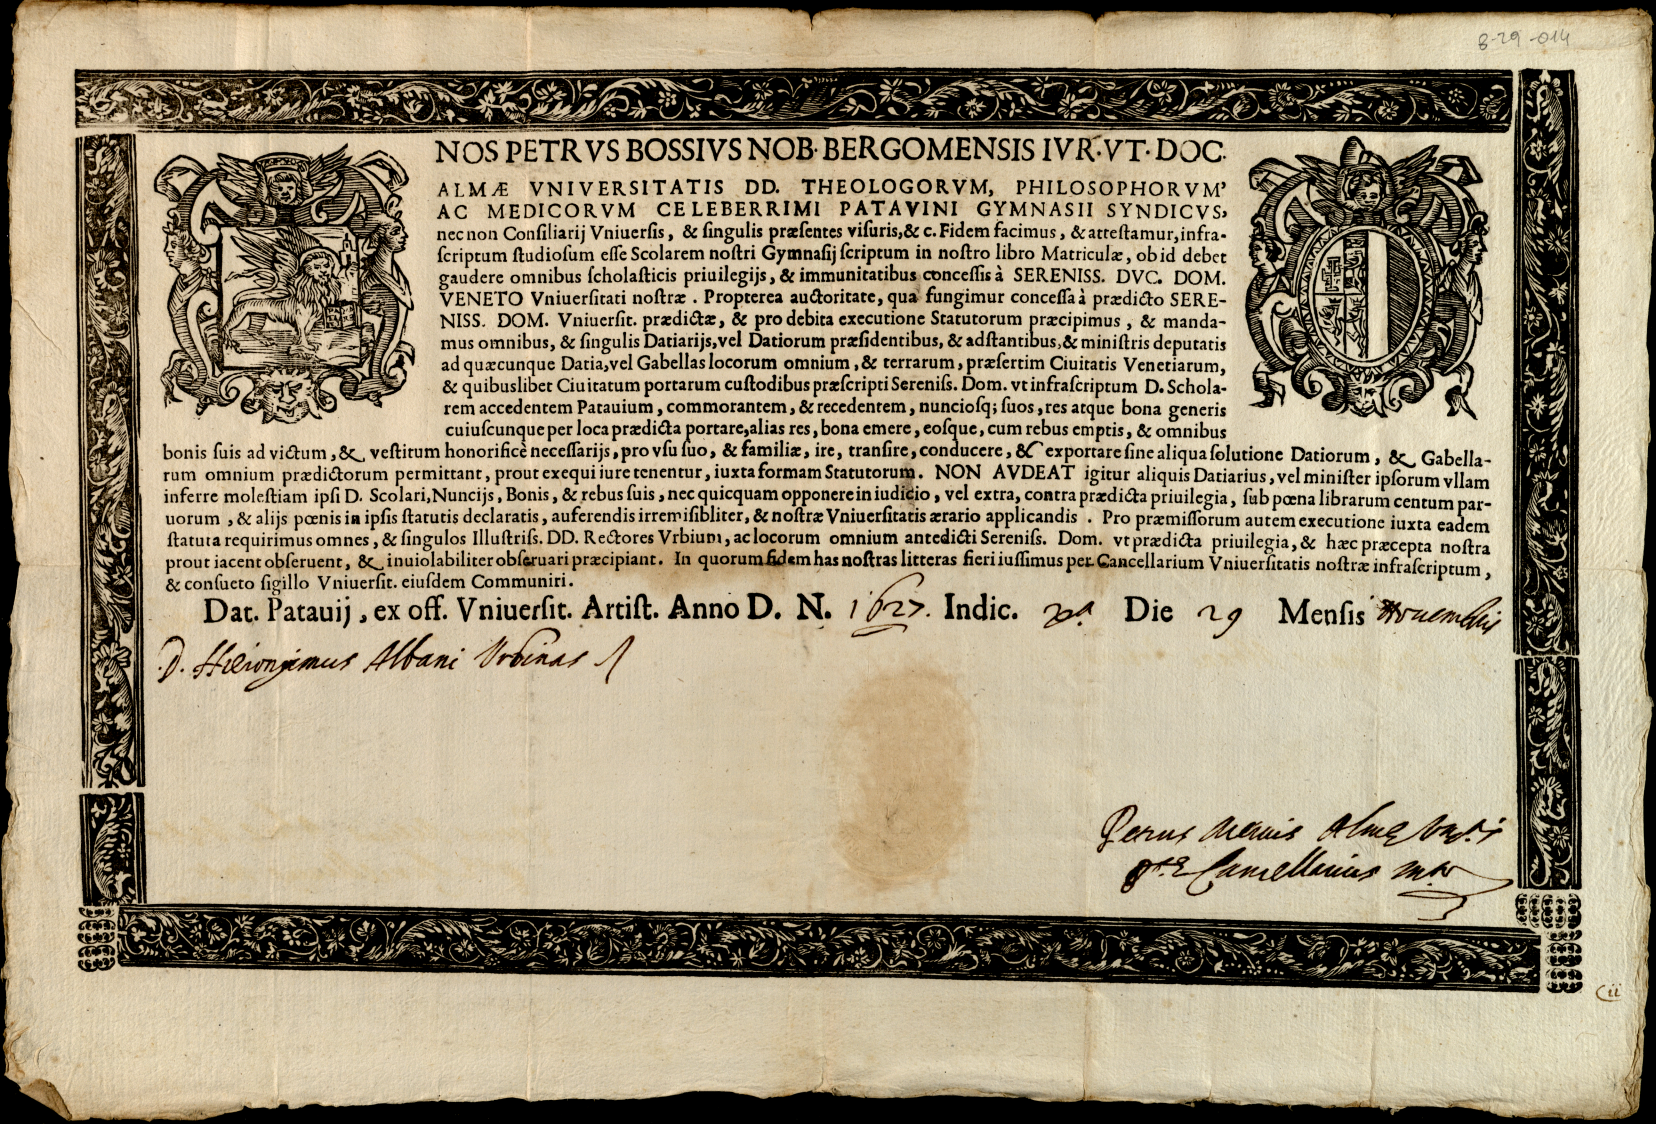 8-29-014
NOS PETRVS BOSSIVS NOB· BERGOMENSIS IVR·VT·DOC·
ALMÆ VNIVERSITATIS DD. THEOLOGORVM, PHILOSOPHORVM,
AC MEDICORVM CELEBERRIMI PATAVINI GYMNASII SYNDICVS,
nec non Conſiliarij Vniuerſis, & ſingulis præſentes viſuris,& c. Fidem facimus, & atteſtamur, infra-
ſcriptum ſtudioſum eſſe Scolarem noſtri Gymnaſij ſcriptum in noſtro libro Matriculæ, ob id debet
gaudere omnibus ſcholaſticis priuilegijs, & immunitatibus conceſſis à SERENISS. DVC. DOM.
VENETO Vniuerſitati noſtræ . Propterea auctoritate, qua fungimur conceſſa à prædicto SERE-
NISS. DOM. Vniuerſit. prædictæ, & pro debita executione Statutorum præcipimus , & manda-
mus omnibus, & ſingulis Datiarijs, vel Datiorum præſidentibus, & adſtantibus,& miniſtris deputatis
ad quæcunque Datia,vel Gabellas locorum omnium , & terrarum, præſertim Ciuitatis Venetiarum,
& quibuslibet Ciuitatum portarum cuſtodibus præſcripti Sereniſs. Dom. vt infraſcriptum D. Schola-
rem accedentem Patauium , commorantem , & recedentem , nuncioſq; ſuos , res atque bona generis
cuiuſcunque per loca prædicta portare,alias res, bona emere, eoſque, cum rebus emptis, & omnibus
bonis ſuis ad victum ,& veſtitum honorificè neceſſarijs, pro vſu ſuo, & familiæ, ire, tranſire, conducere, & exportare ſine aliqua ſolutione Datiorum , & Gabella-
rum omnium prædictorum permittant, prout exequi iure tenentur, iuxta formam Statutorum. NON AVDEAT igitur aliquis Datiarius, vel miniſter ipſorum vllam
inferre moleſtiam ipſi D. Scolari, Nuncijs, Bonis, & rebus ſuis , nec quicquam opponere in iudicio , vel extra, contra prædicta priuilegia, ſub pœna librarum centum par-
uorum , & alijs pœnis in ipſis ſtatutis declaratis, auferendis irremiſibliter, & noſtræ Vniuerſitatis ærario applicandis . Pro præmiſſorum autem executione iuxta eadem
ſtatuta requirimus omnes, & ſingulos Illuſtriſs. DD. Rectores Vrbium, ac locorum omnium antedicti Sereniſs. Dom. vt prædicta priuilegia, & hæc præcepta noſtra
prout iacent obſeruent, & inuiolabiliter obſeruari præcipiant. In quorum fidem has noſtras litteras fieri iuſſimus per Cancellarium Vniuerſitatis noſtræ infraſcriptum,
& conſueto ſigillo Vniuerſit. eiuſdem Communiri.
Dat. Patauij , ex off. Vniuerſit. Artiſt. Anno D. N. 1627. Indic. Xª Die 29 Menſis Nouembris
D. Hieronymus Albani Urbinas
Petrus Almę
Cancellarius